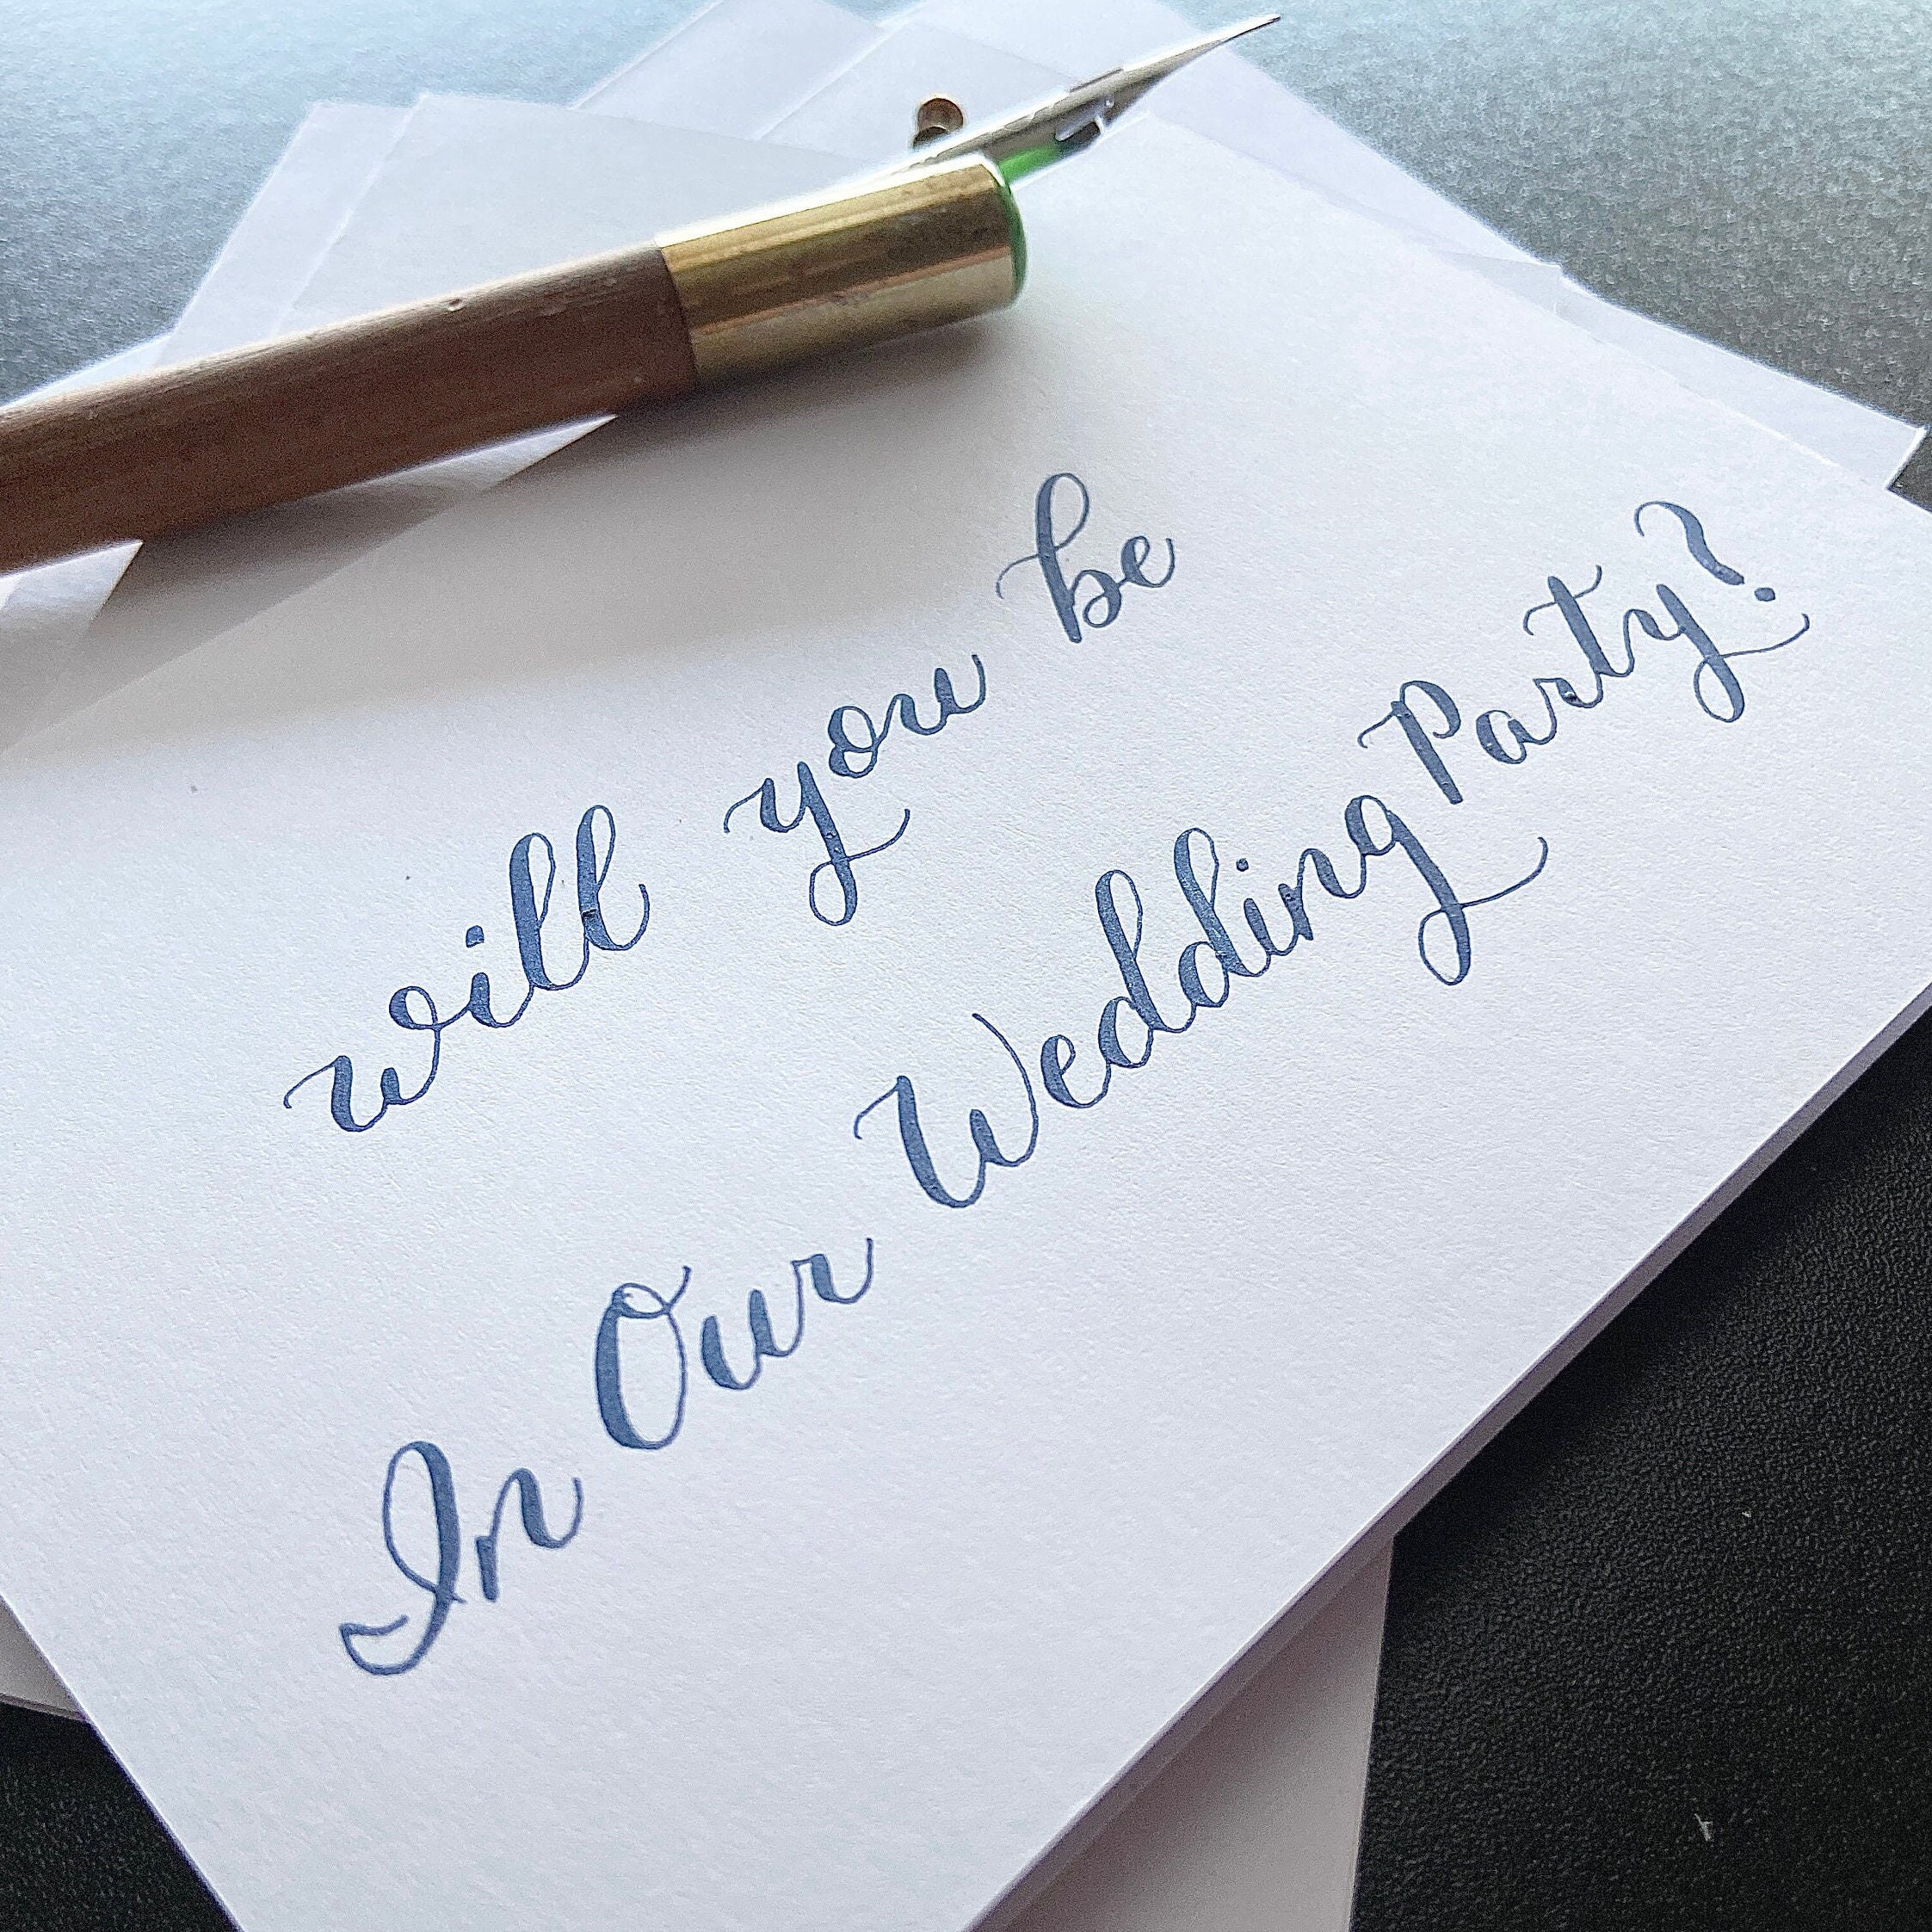 will you be
In Our Wedding Party?